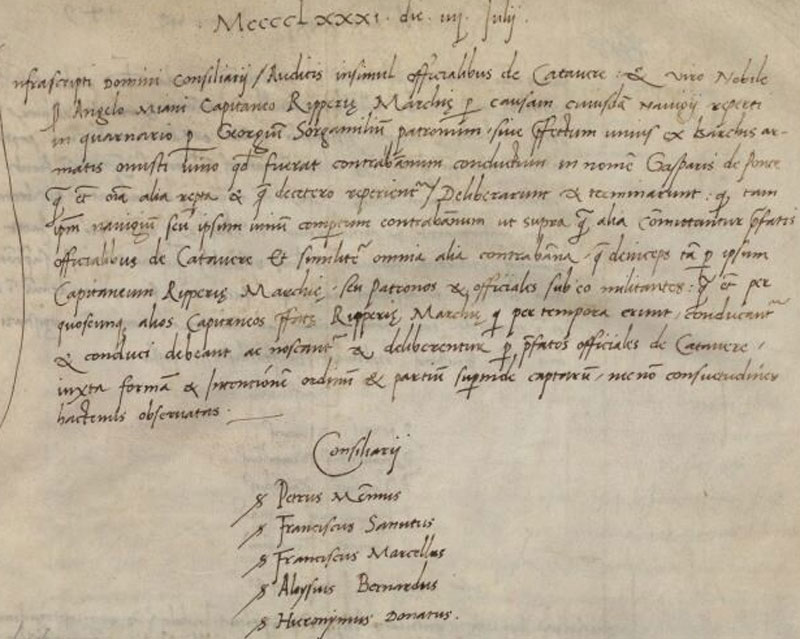 MccccLxxxi. die. iiij. Julij.
nfrascripti Domini Consiliarij / Auditis insimul officialibus de Catavere: & viro Nobile
ꝑ Angelo Miani Capitaneo Ripperię Marchię ꝑ causam cuiusdā Navigij reperti
in quarnario ꝑ Georgiū Sorgamiliū patronum, sive ꝓfectum unius ex barchis ar-
matis onusti vino qd̄ fuerat contrabānum conductum in nomē Gasparis de
q̄ et oīa alia repta & q̄ decetero reperient̄ / Deliberarunt & terminarunt: ꝙ tam
ipm̄ navigiū seu ipsum vinū compertum contrabānum ut supra q̄ alia Cōmittentur p̄fatis
officialibus de Catavere Et similitē omnia alia contrabāna, q̄ deinceps tā ꝑ ipsum
Capitaneum Ripperię Marchię, seu patronos & officiales sub eo militantes: q̄ et per
quoscunq alios Capitaneos Ripperię Marchię q ꝑ tempora erunt, conducant̄
& conduci debeant ac noscant̄ & deliberentur ꝑ p̄fatos officiales de Catavere,
iuxta formā & Intentionē ordinū & partiū suꝑinde captarū, necnō consuetudines
hactenus observatas.
Consiliarij
Petrus Mēmus
Franciscus Sanutus
Franciscus Marcellus
Aloysius Bernardus
Hieronymus Donatus.